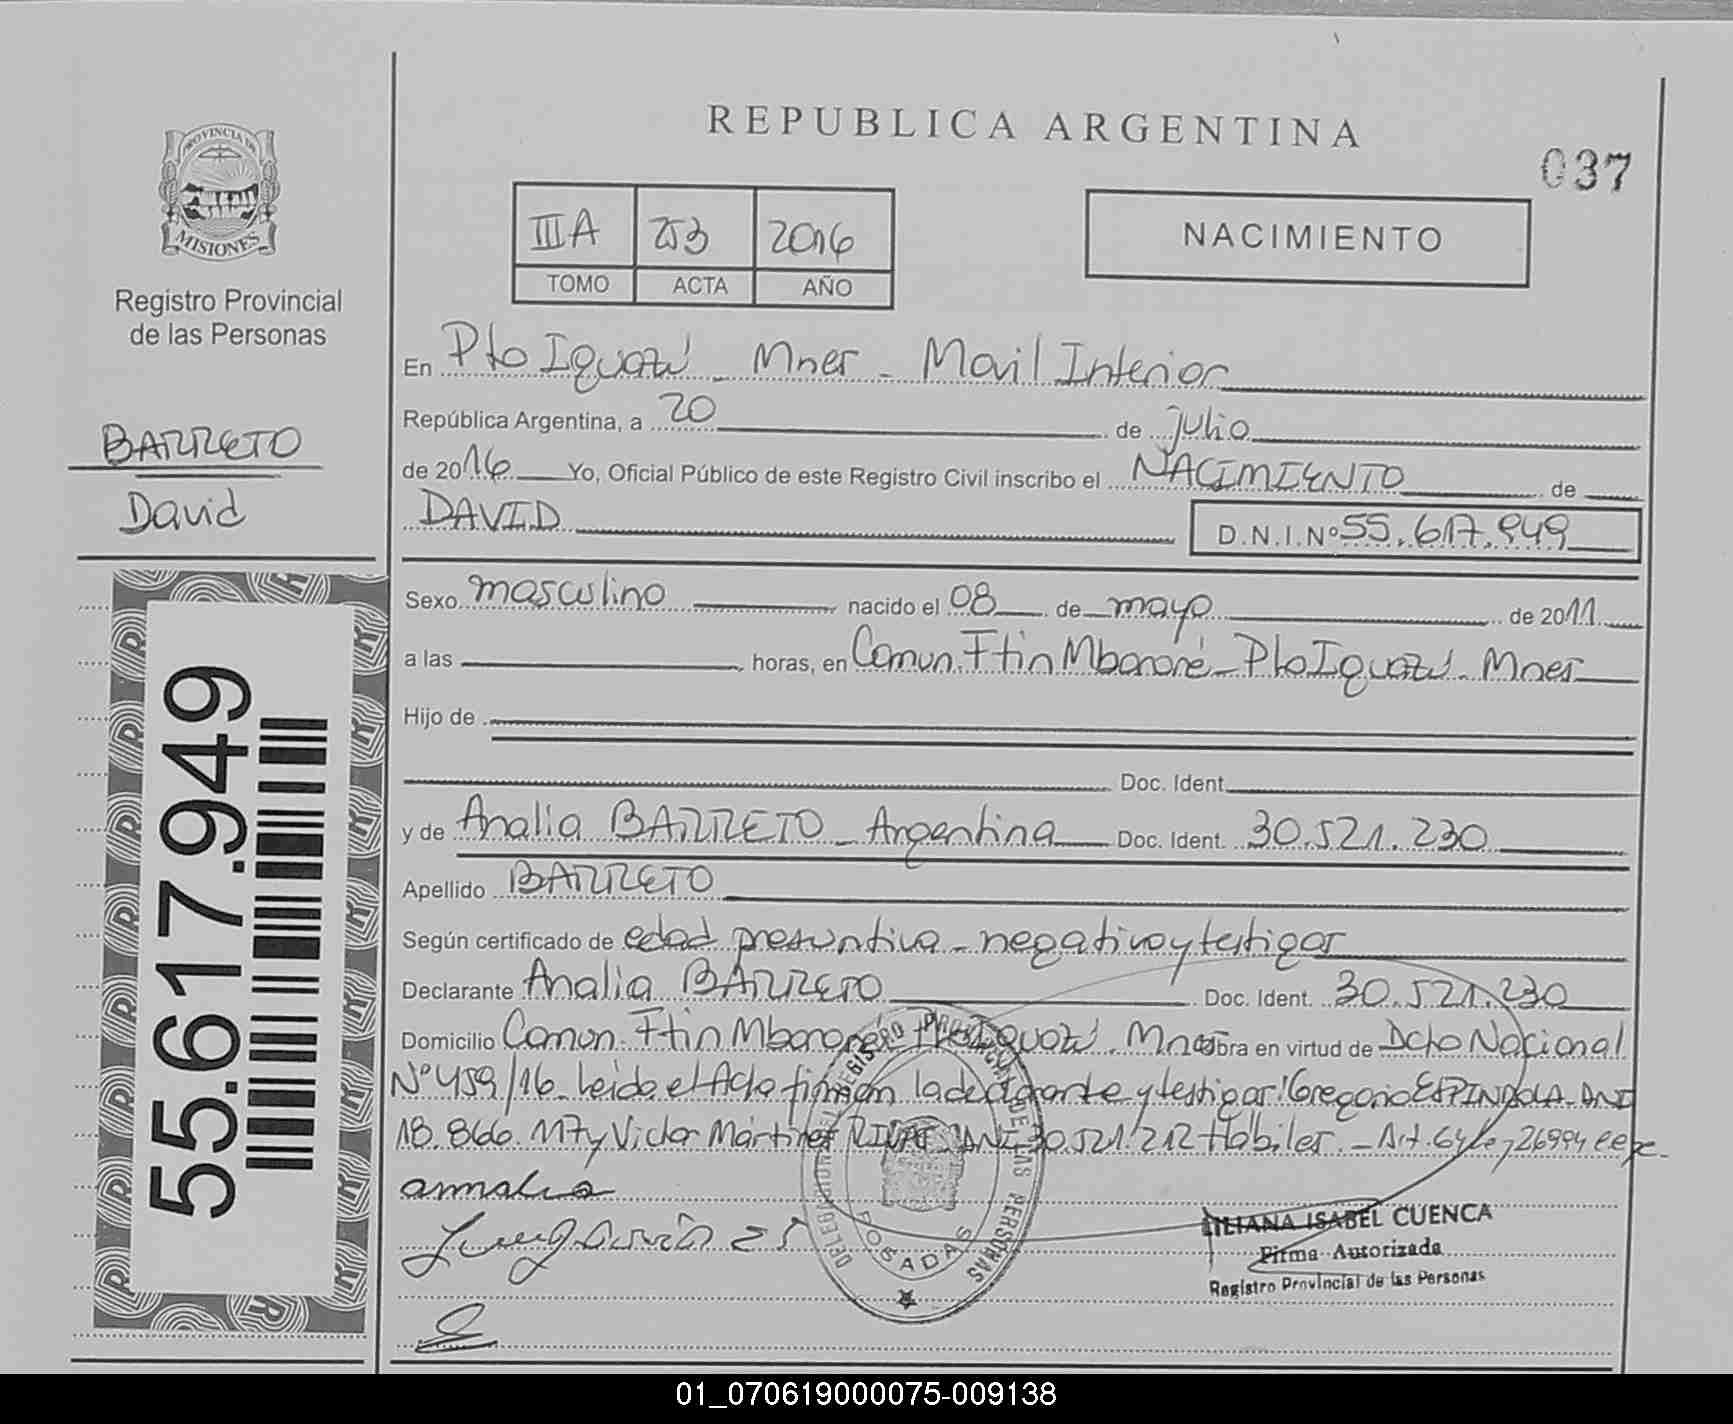 REPUBLICA ARGENTINA
037
PROVINCIA DE
MISIONES
Registro Provincial
de las Personas
III A 253 2016
TOMO ACTA AÑO
NACIMIENTO
BARRETO
David
En Pto Iguazú - Mnes - Movil Interior
República Argentina, a 20 de julio
de 2016 Yo, Oficial Público de este Registro Civil inscribo el NACIMIENTO de
DAVID D.N.I.Nº 55.617.949
Sexo masculino nacido el 08 de mayo de 2011
a las horas, en Comun. Ftin Mbororé - Pto Iguazú - Mnes
Hijo de
Doc. Ident.
y de Analia BARRETO - Argentina Doc. Ident. 30.521.230
Apellido BARRETO
Según certificado de edad presuntiva - negativo y testigos
Declarante Analia BARRETO Doc. Ident. 30.521.230
Domicilio Comun. Ftin Mbororé Pto Iguazú. Mnes Obra en virtud de Dcto Nacional
Nº 459/16. Leída el Acta firman la declarante y testigos: Gregorio ESPINDOLA. DNI
18.866.117 y Victor Martinez DNI 30.521.212 Hábiles. - Art. 64 Ley 26994
55.617.949
DELEGACION REGISTRO PROVINCIAL DE LAS PERSONAS
POSADAS
LILIANA ISABEL CUENCA
Firma Autorizada
Registro Provincial de las Personas
01_070619000075-009138